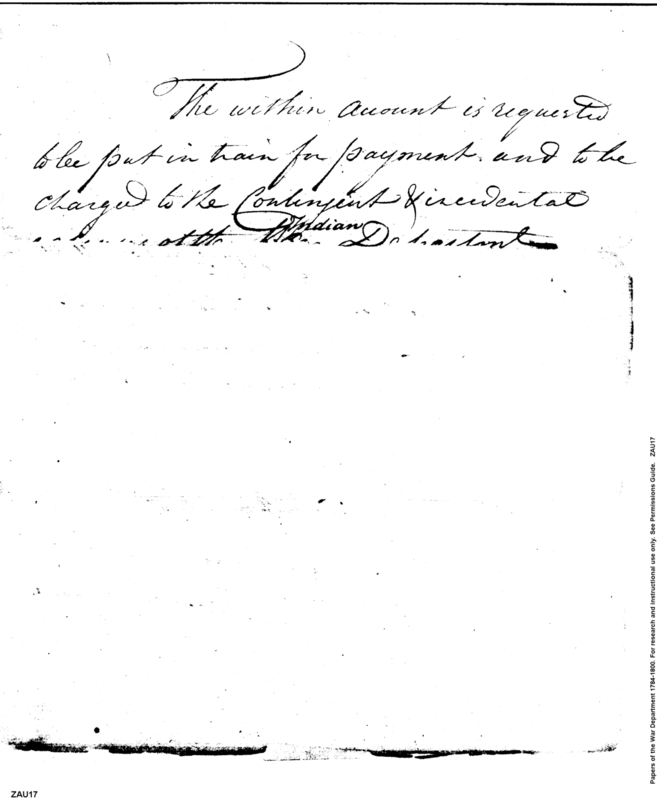 The within account is requested
to be put in train for payment. and to be
charged to the Contingent & incidental
Indian
of the Department
Papers of the War Department 1784-1800. For research and instructional use only. See Permissions Guide. ZAU17
ZAU17